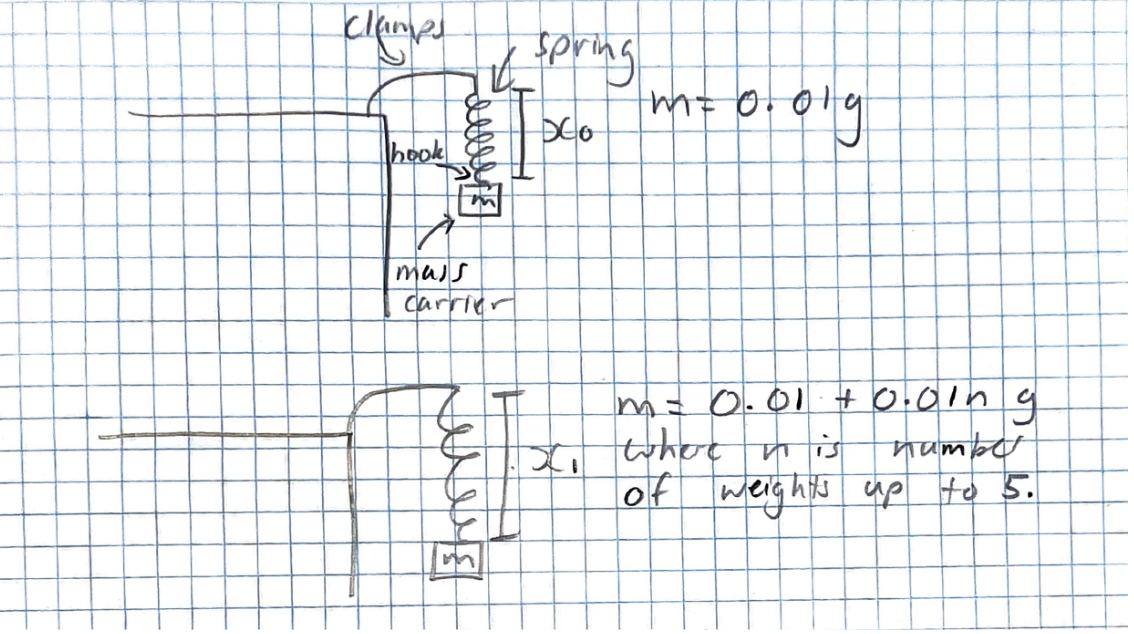 clamps
spring
m = 0.01g
x₀
hook
m
mass
carrier
m = 0.01 + 0.01n g
where n is number
x₁
of weights up to 5.
m